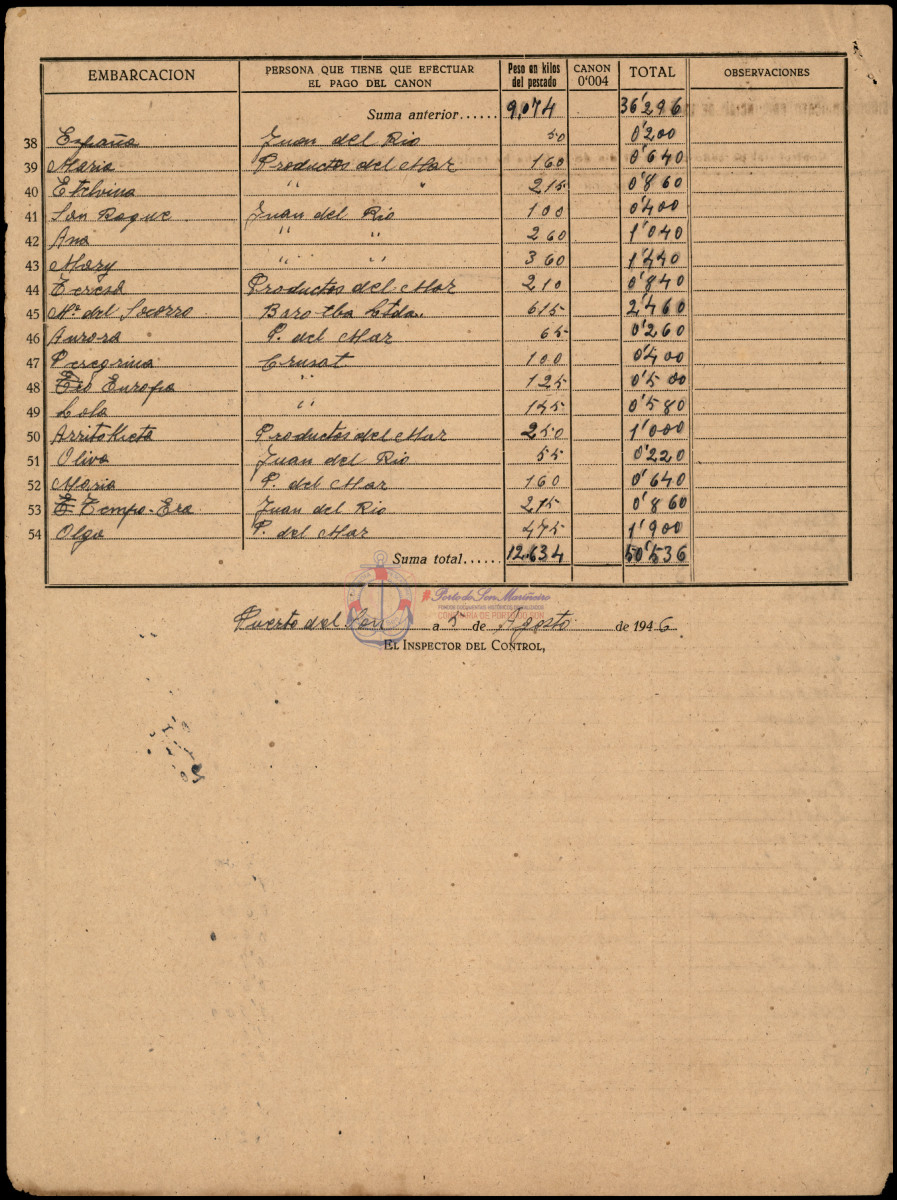 EMBARCACION PERSONA QUE TIENE QUE EFECTUAR EL PAGO DEL CANON Peso en kilos del pescado CANON 0'004 TOTAL OBSERVACIONES
Suma anterior...... 9,074 36'296
38 España Juan del Rio 50 0'200
39 Maria Productos del Mar 160 0'640
40 Etelvina " " 215 0'860
41 San Roque Juan del Rio 100 0'400
42 Ana " " 260 1'040
43 Mary " " 360 1'440
44 Teresa Productos del Mar 210 0'840
45 Mª del Socorro Ltda. 615 2'460
46 Aurora P. del Mar 65 0'260
47 Peregrina Crusat 100 0'400
48 Europa " 125 0'500
49 Lola " 145 0'580
50 Productos del Mar 250 1'000
51 Oliva Juan del Rio 55 0'220
52 Maria P. del Mar 160 0'640
53 Tempo-Era Juan del Rio 215 0'860
54 Olga P. del Mar 475 1'900
Suma total..... 12.634 50'536
Porto do Son Mariñeiro
FONDOS DOCUMENTAIS HISTÓRICOS DIXITALIZADOS
CONFRARÍA DE PORTO DO SON
Puerto del Son a 5 de Agosto de 1946
EL INSPECTOR DEL CONTROL,